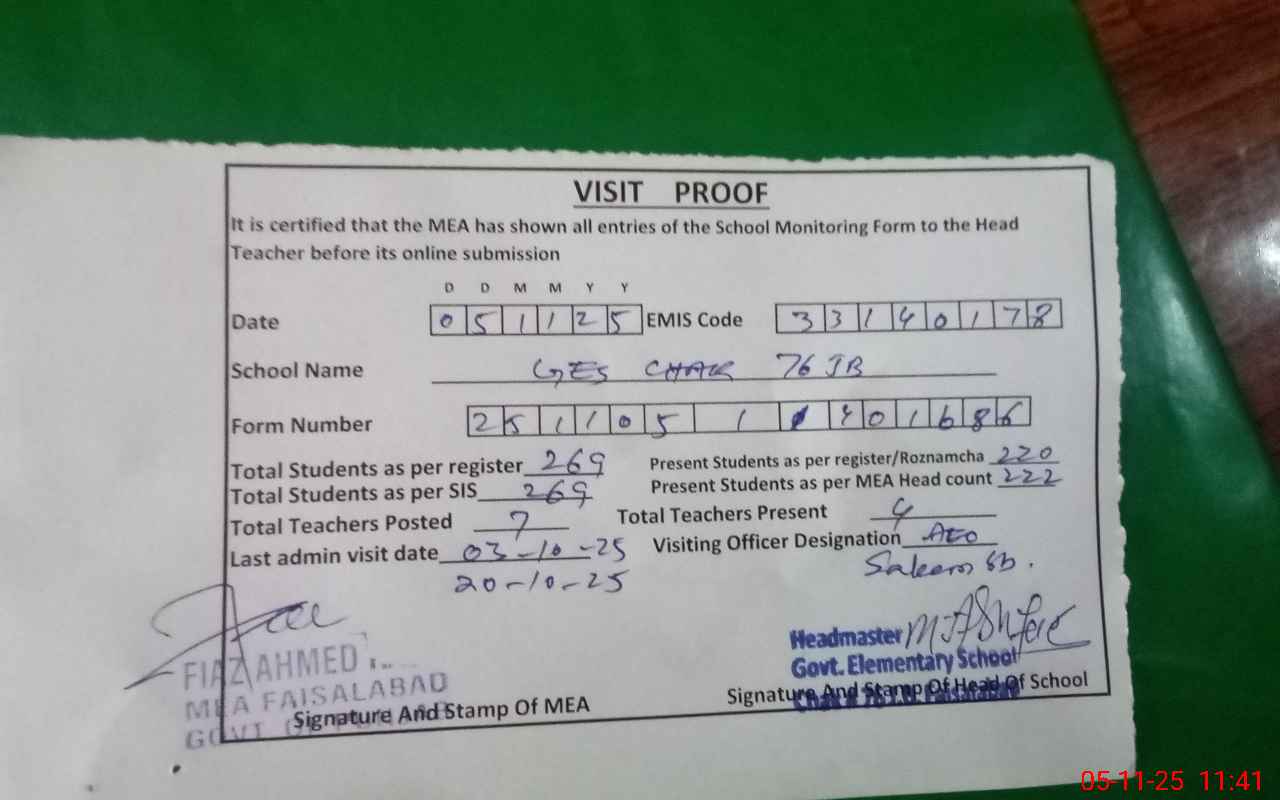 VISIT PROOF
It is certified that the MEA has shown all entries of the School Monitoring Form to the Head
Teacher before its online submission
D D M M Y Y
Date 0 5 1 1 2 5 EMIS Code 3 3 1 4 0 1 7 8
School Name GES CHAK 76 JB
Form Number 2 5 1 1 0 5 1 4 0 1 6 8 6
Total Students as per register 269 Present Students as per register/Roznamcha 220
Total Students as per SIS 269 Present Students as per MEA Head count 222
Total Teachers Posted 7 Total Teachers Present
Last admin visit date 03-10-25 Visiting Officer Designation AEO
20-10-25 Saleem sb.
FIAZ AHMED
MEA FAISALABAD
GOVT
Signature And Stamp Of MEA
Headmaster
Govt. Elementary School
Signature And Stamp Of Head Of School
05-11-25 11:41